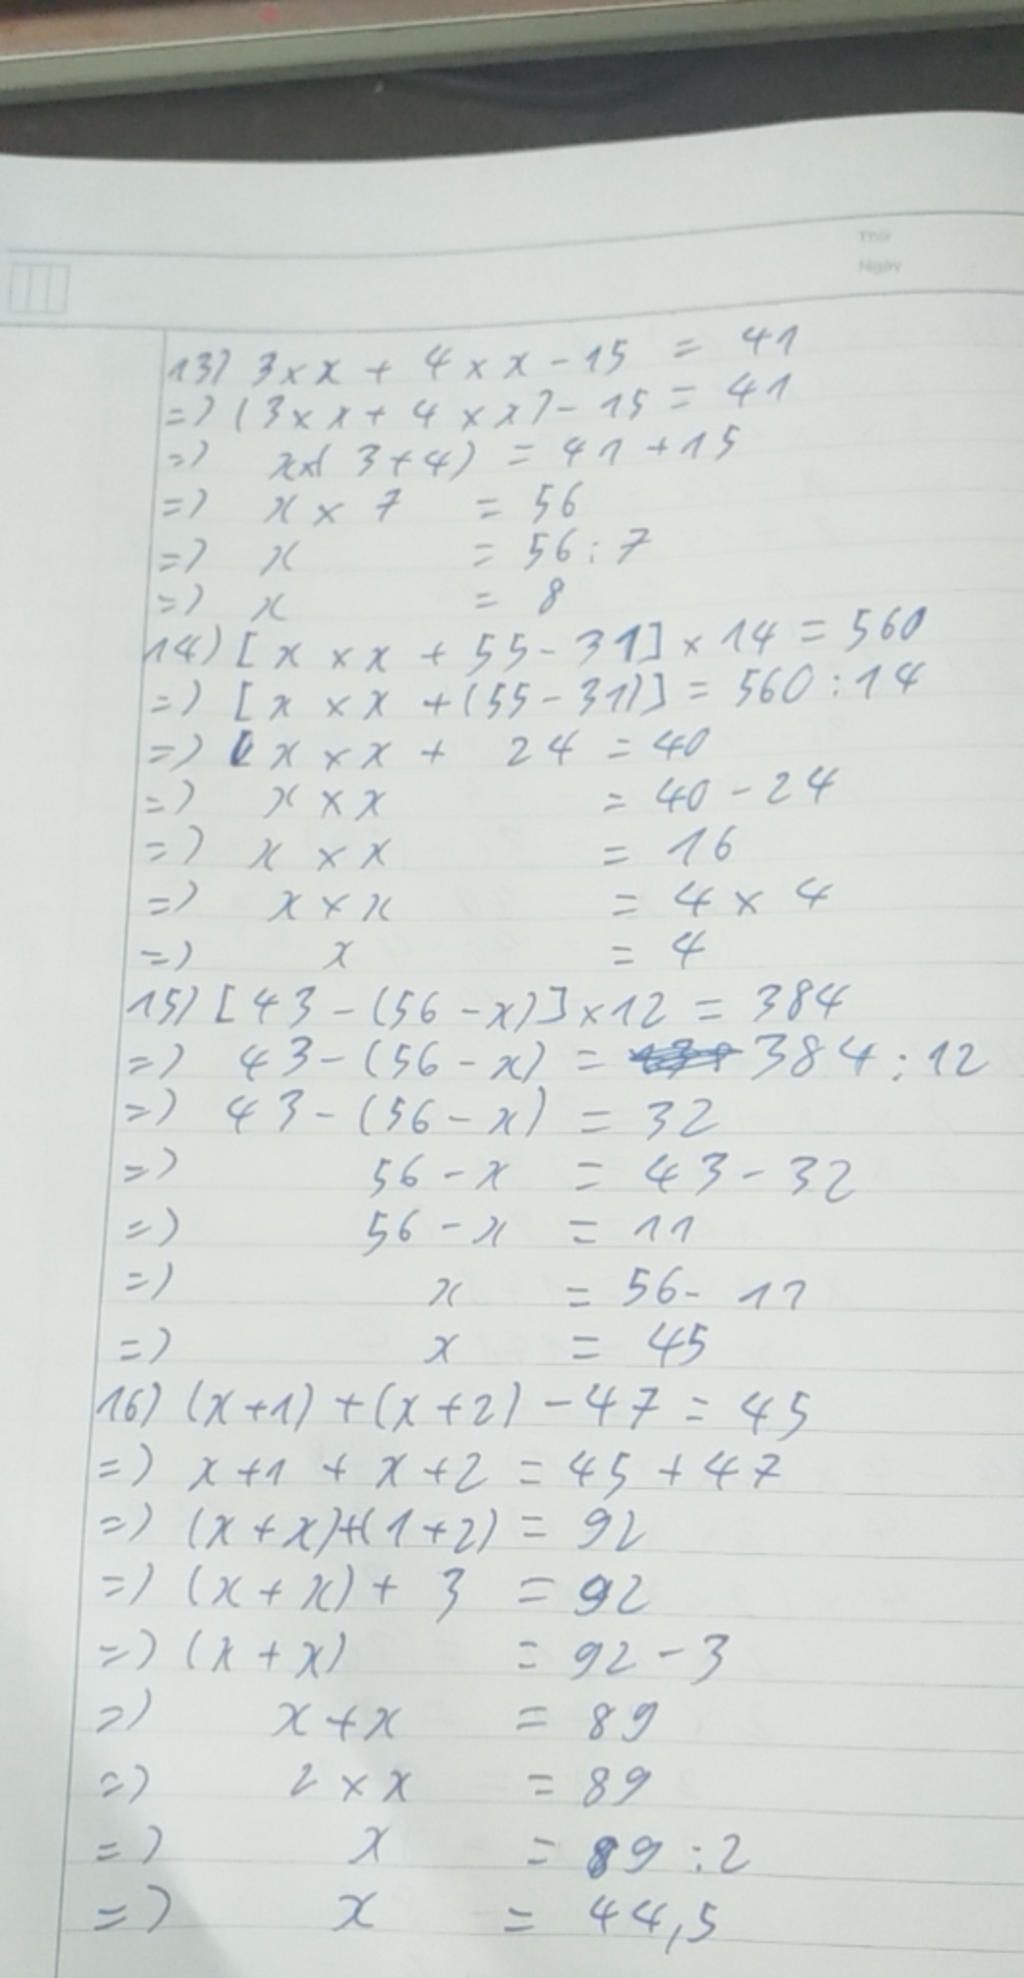 Thứ
Ngày
13) 3 × x + 4 × x - 15 = 41
=) (3 × x + 4 × x) - 15 = 41
=) x×( 3+4) = 41 +15
=) x × 7 = 56
=) x = 56 : 7
=) x = 8
14) [ x × x + 55 - 31] × 14 = 560
=) [ x × x + (55 - 31)] = 560 : 14
=) x × x + 24 = 40
=) x × x = 40 - 24
=) x × x = 16
=) x × x = 4 × 4
=) x = 4
15) [ 43 - (56 - x)] × 12 = 384
=) 43 - (56 - x) = 384 : 12
=) 43 - (56 - x) = 32
=) 56 - x = 43 - 32
=) 56 - x = 11
=) x = 56 - 11
=) x = 45
16) (x+1) + (x+2) - 47 = 45
=) x+1 + x+2 = 45 + 47
=) (x + x)+(1+2) = 92
=) (x + x) + 3 = 92
=) (x + x) = 92 - 3
=) x + x = 89
=) 2 × x = 89
=) x = 89 : 2
=) x = 44,5